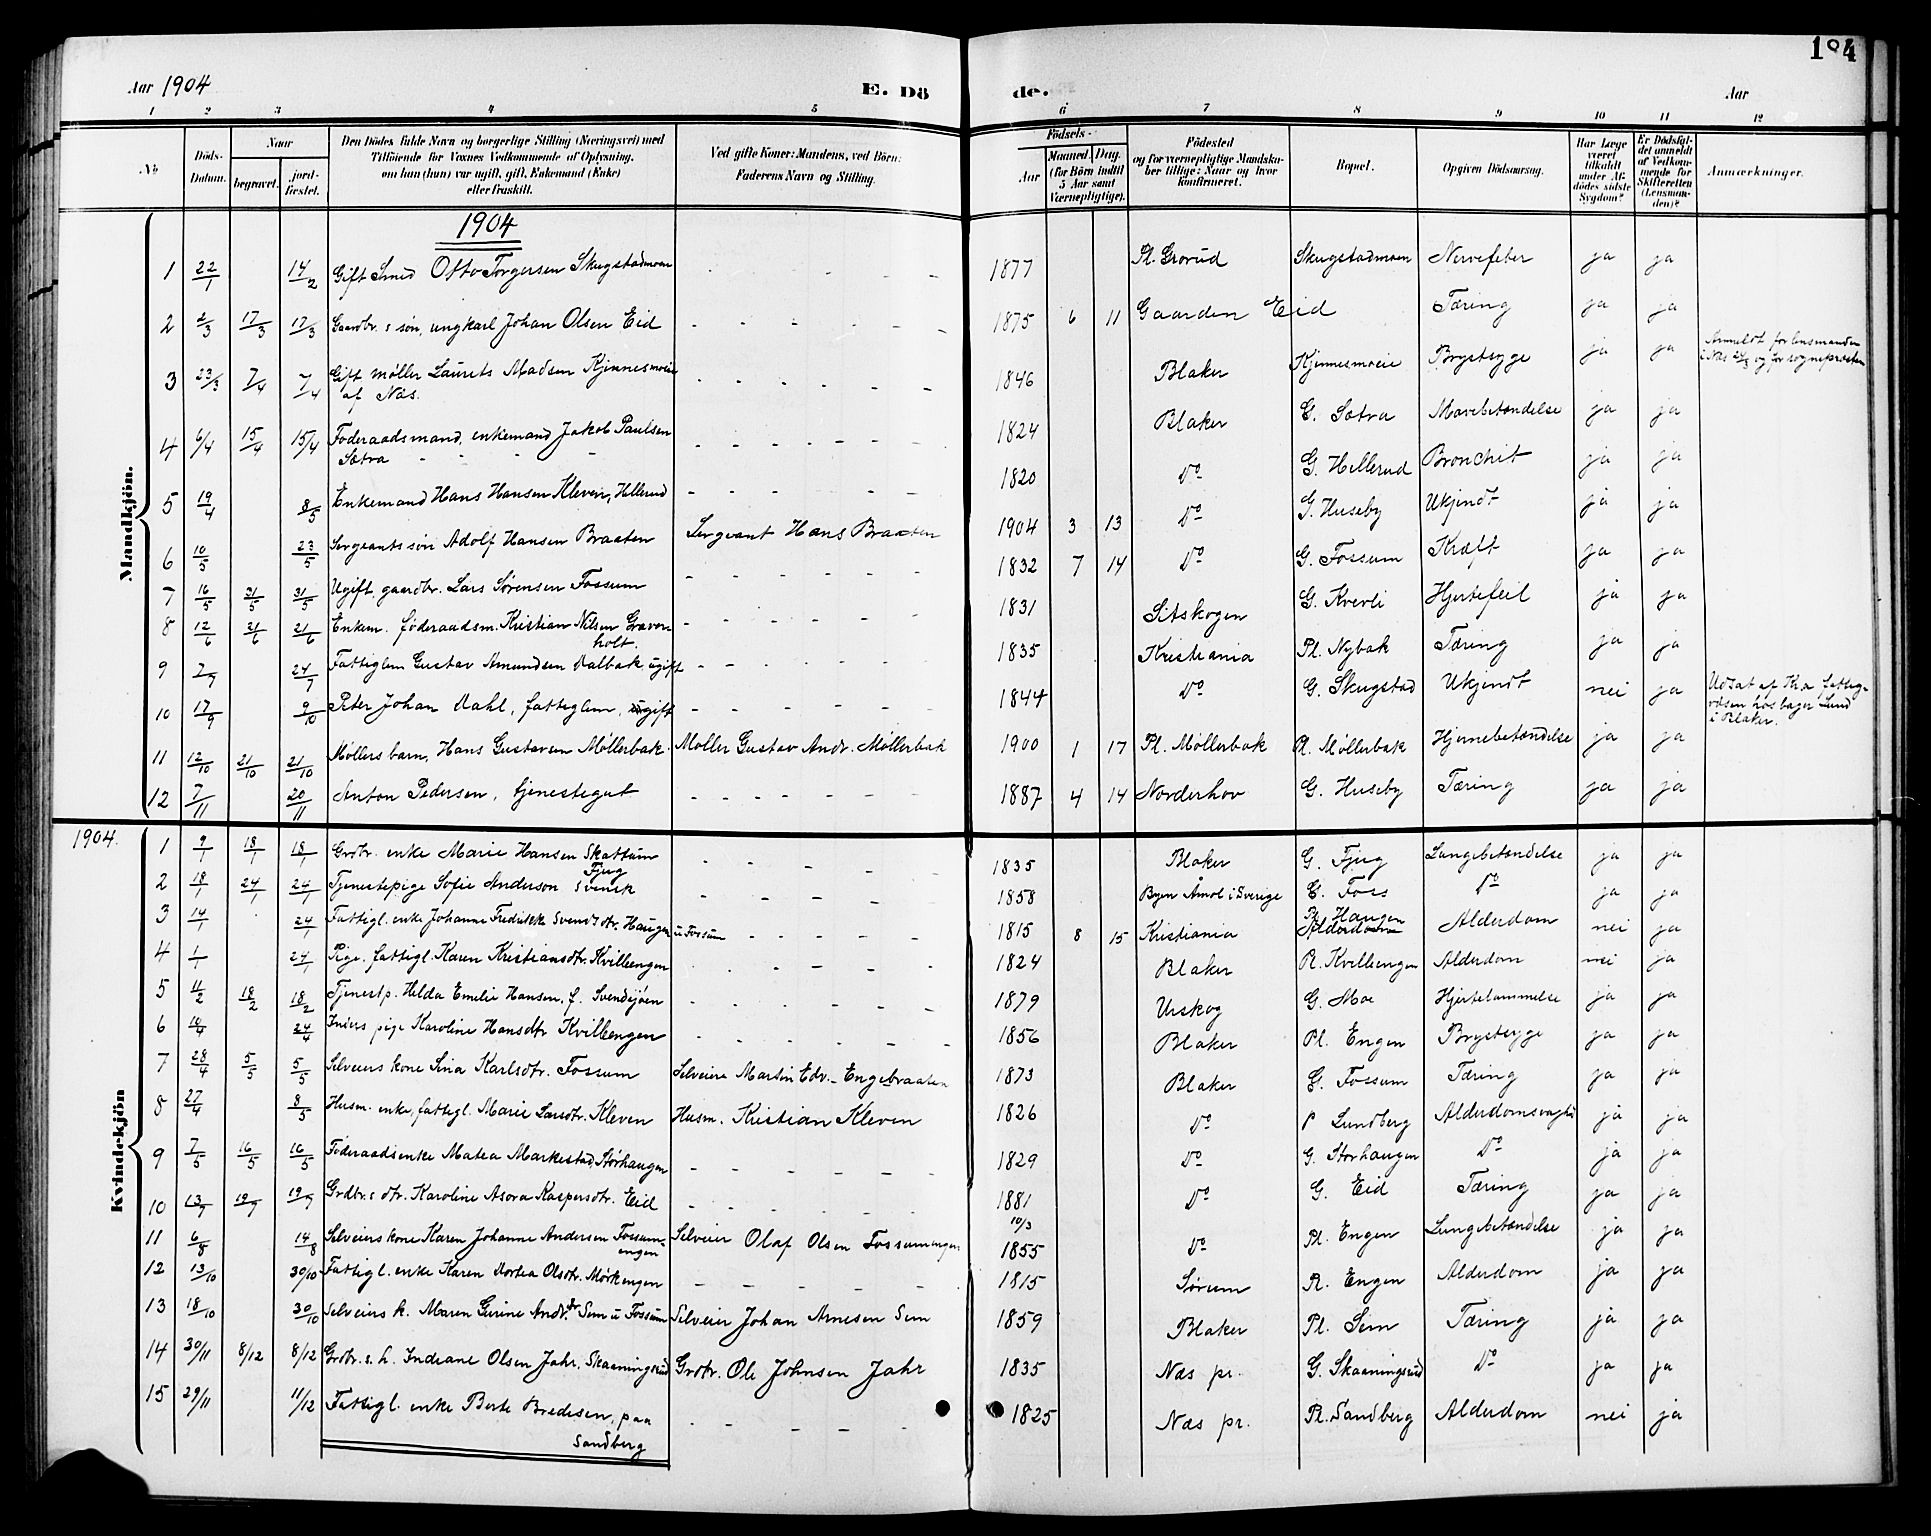 184
Aar 1904 E. Dö de. Aar
1 2 3 4 5 6 7 8 9 10 11 12
No
Döds-Datum.
Naar
begravet.
jord-fæstet.
Den Dödes fulde Navn og borgerlige Stilling (Næringsvei) med
Tilföiende for Voxnes Vedkommende af Oplysning,
om han (hun) var ugift, gift, Enkemand (Enke)
eller fraskilt.
Ved gifte Koner: Mandens, ved Börn:
Faderens Navn og Stilling.
Födsels-
Aar
Maaned. Dag.
(for Börn indtil
5 Aar samt
Værnepligtige).
Födested
og for værnepligtige Mandska-
ber tillige: Naar og hvor
konfirmeret.
Bopæl.
Opgiven Dödsaarsag.
Har Læge
været
tilkaldt
under Af-
dödes sidste
Sygdom?
Er Dödsfal-
det anmeldt
af Vedkom-
mende for
Skifteretten
(Lensman-
den)?
Anmærkninger.
Mandkjön.
1904
1 22/1 14/2 Gift Smed Otto Torgersen Skugstadmoen - - - 1877 Pl. Grorud Skugstadmoen Nervefeber ja ja
2 2/3 17/3 17/3 Gaardbr.s søn, ungkarl Johan Olsen Eid - - - - - - 1875 6 11 Gaarden Eid Tæring ja ja
3 23/3 7/4 7/4 Gift møller Laurets Madsen Kjennesmoeie
af Næs. - - - - - - 1846 Blaker Kjennesmoeie Brystsyge ja ja Anmeldt for lensmanden
i Næs 26/3 og for sognepræsten
4 6/4 15/4 15/4 Føderaadsmand, enkemand Jakob Paulsen
Sætra - - - - 1824 Blaker G. Sætra Mavebetændelse ja ja
5 19/4 8/5 Enkemand Hans Hansen Kleven, Hellerud - - - - - 1820 Do G. Hellerud Bronchit ja ja
6 10/5 23/5 Sergeants søn Adolf Hansen Braaten Sergeant Hans Braaten 1904 3 13 Do G. Huseby Ukjendt ja ja
7 16/5 31/5 31/5 Ugift, gaardbr. Lars Sørensen Fossum - - - - - - 1832 7 14 Do G. Fossum Kræft ja ja
8 12/6 21/6 21/6 Enkem. føderaadsm. Kristian Nilsen Graver-
holt. - - - - - - 1831 Sitskogen G. Kverli Hjertefeil ja ja
9 2/7 24/7 Fattiglem Gustav Amundsen Dalbak ugift - - - - - - 1835 Kristiania Pl. Nybak Tæring ja ja
10 17/9 9/10 Peter Johan Dahl, fatteglem, ugift - - - - - - 1844 Do G. Skugstad Ukjendt nei ja Udsat af Kra fatteg-
væsen hos bager Lund
i Blaker.
11 12/10 21/10 21/10 Møllers barn, Hans Gustavsen Møllerbak. Møller Gustav Andr. Møllerbak 1900 1 17 Pl. Møllerbak Pl. Møllerbak Hjernebetændelse ja ja
12 7/11 20/11 Anton Pedersen, tjenestegut - - - - - - 1887 4 14 Norderhov G. Huseby Tæring ja ja
1904.
Kvindekjön
1 9/1 18/1 18/1 Grdbr. enke Marie Hansen Skattum
Fjug - - - - - 1835 Blaker G. Fjug Lungebetændelse ja ja
2 18/1 24/1 24/1 Tjenestepige Sofie Anderson Svensk - - - - - 1858 Byen Åmol i Sverige G. Foss Do ja ja
3 14/1 24/1 Fattigl. enke Johanne Fredrikke Svendsdtr. Haugen u Fossum - - - - - 1815 8 15 Kristiania Pl. Haugen Alderdom nei ja
4 1/1 24/1 Pige, fattigl. Karen Kristiansdtr. Kvillengen - - - - - 1824 Blaker Pl. Kvillengen Alderdom nei ja
5 11/2 18/2 18/2 Tjenestp. Helda Emelie Hansen, f. Svendsjøen - - - - - 1879 Urskog G. Moe Hjertelammelse ja ja
6 10/4 24/4 Inders pige Karoline Hansdtr Kvillengen - - - - - - 1856 Blaker Pl. Engen Brystsyge ja ja
7 28/4 5/5 5/5 Selveiers kone Sina Karlsdtr. Fossum Selveiere Martin Edv. Engebraaten 1873 Blaker G. Fossum Tæring ja ja
8 27/4 8/5 Husm. enke, fattigl. Marie Larsdtr. Kleven Husm. Kristian Kleven 1826 Do P Lundberg Alderdomsvaghed ja ja
9 7/5 16/5 16/5 Føderaadsenke Matea Markestad, Storhaugen - - - - - - 1829 Do G. Storhaugen Do ja ja
10 13/7 19/7 19/7 Grdbr.s dtr. Karoline Asora Kaspersdtr. Eid - - - - - - 1881
10/3 Do G. Eid Tæring ja ja
11 6/8 14/8 Selveiers kone Karen Johanne Andersen Fossum-
engen Selveier Olaf Olsen Fossumengen 1855 Do Pl. Engen Lungebetændelse ja ja
12 13/10 30/10 Fattigl. enke Karen Dortea Olsdtr. Mørkengen - - - - - 1815 Sørum Pl. Engen Alderdom ja ja
13 18/10 30/10 Selveiers k. Maren Gurine Andr.dr Sem u Fossum Selveier Johan Arnesen Sem 1859 Blaker Pl. Sem Tæring ja ja
14 30/11 8/12 8/12 Grdbr.s. h. Indiane Olsen Jahr. Skaaningsrud Grdbr. Ole Johnsen Jahr 1835 Næs pr. G. Skaaningsrud Do ja ja
15 29/11 11/12 Fattigl. enke Berte Bredesen, paa
Sandberg - - - - - 1825 Næs pr. Pl. Sandberg Alderdom nei ja